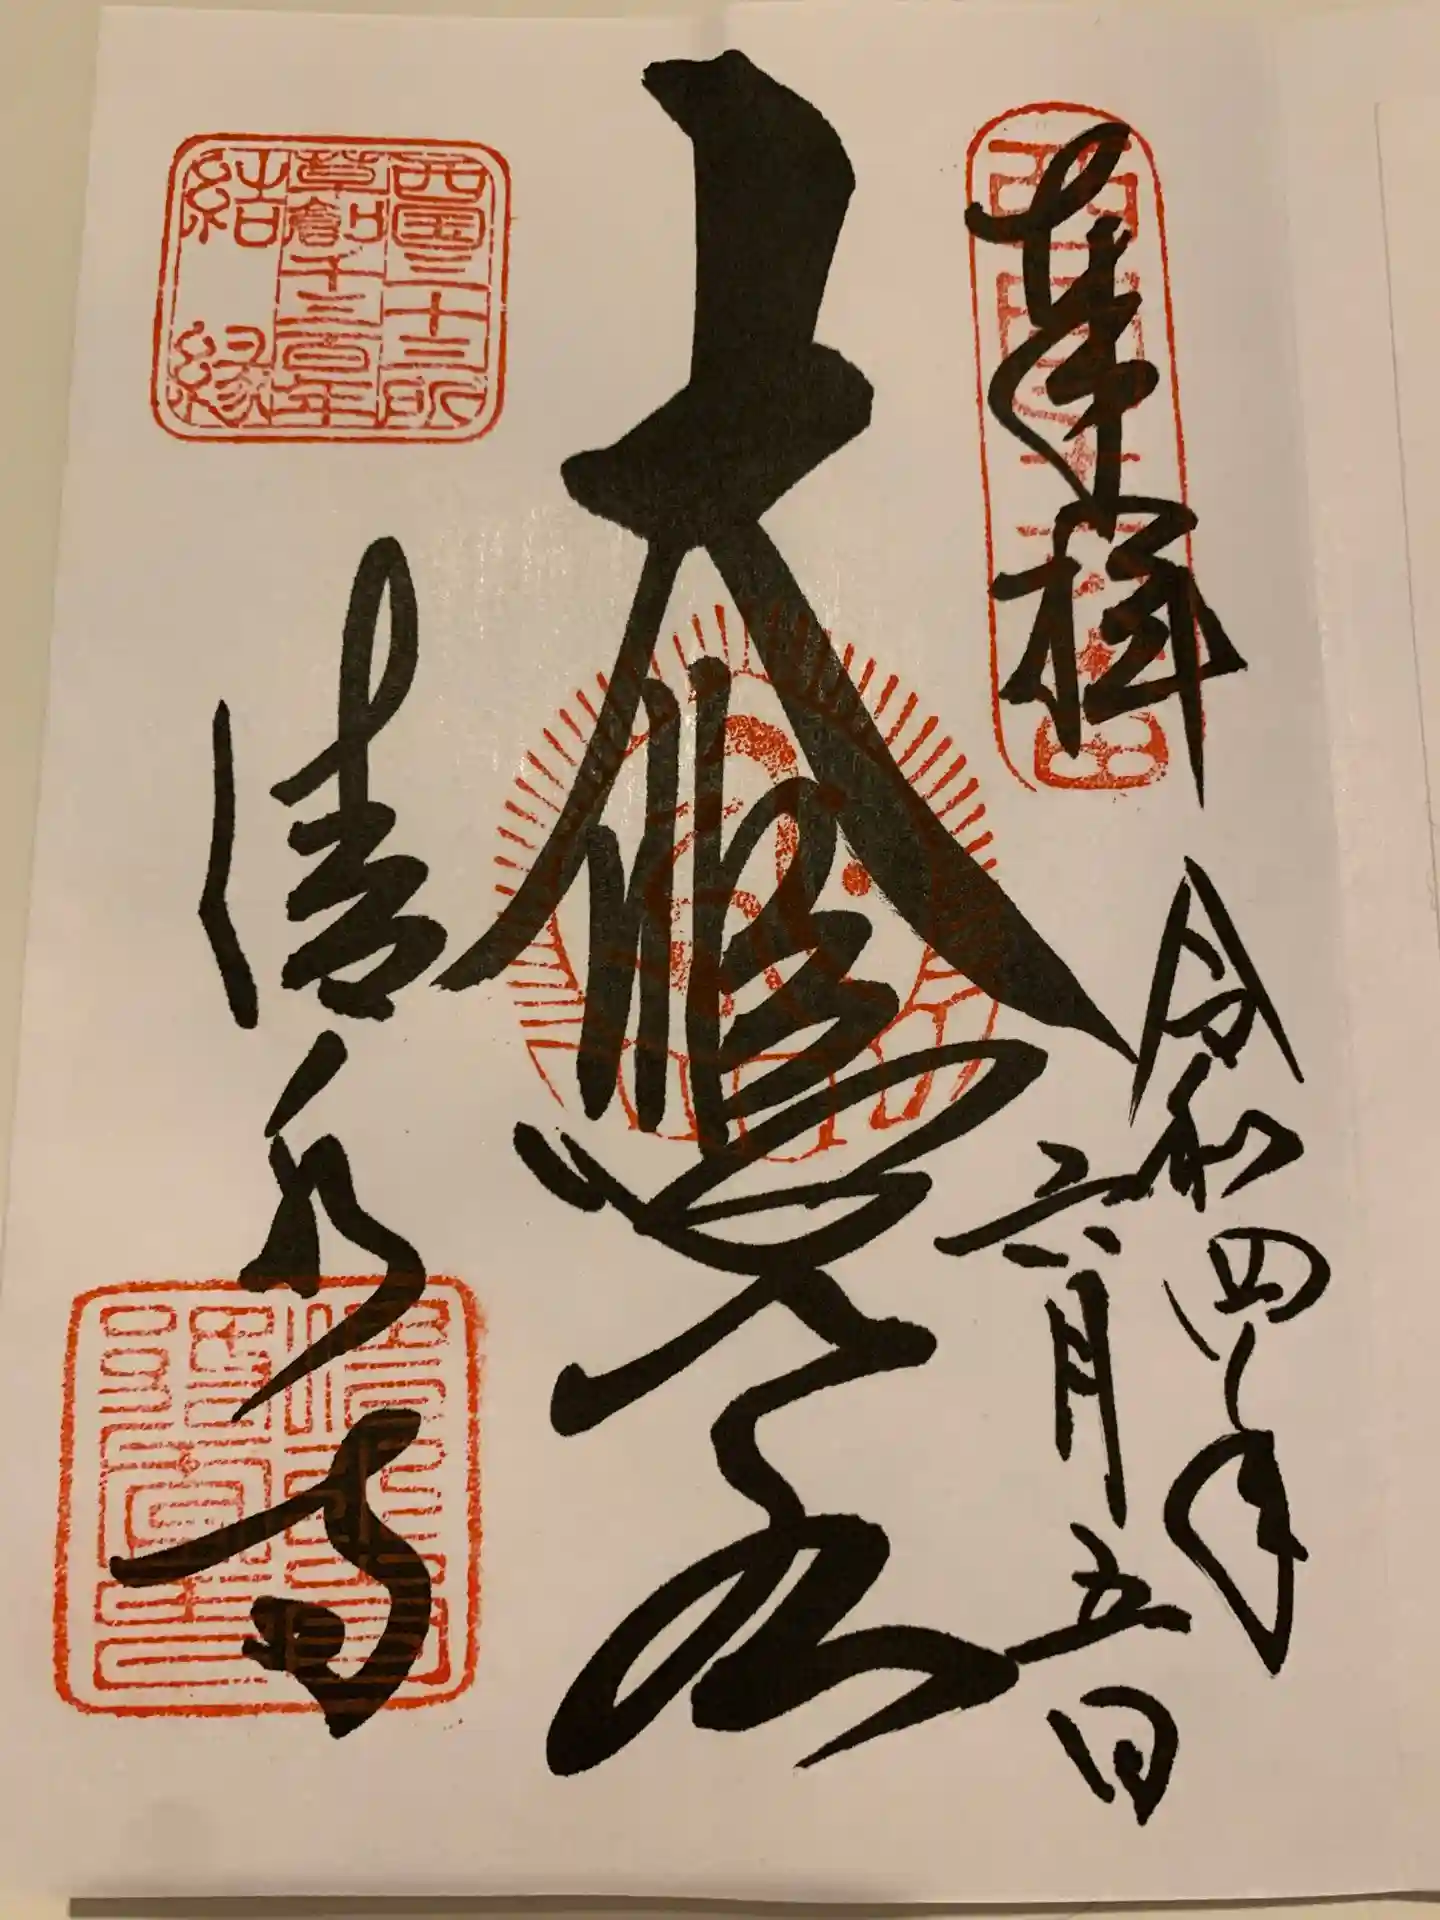 奉拝
令和四年
六月五日
大悲閣
西国三十三所
草創千三百年
結縁
清水寺